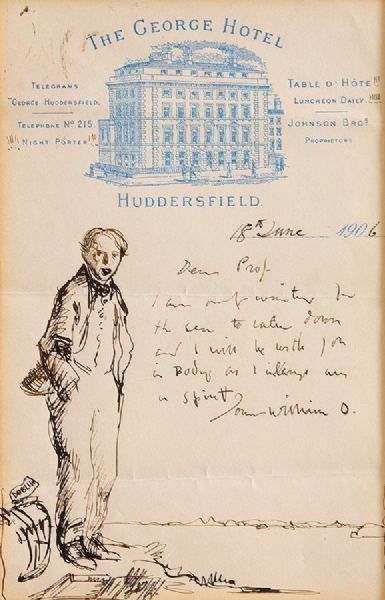 THE GEORGE HOTEL
TELEGRAMS
"GEORGE HUDDERSFIELD,
TELEPHONE No 215.
NIGHT PORTER
TABLE D'HÔTE
LUNCHEON DAILY
JOHNSON BROS
PROPRIETORS
HUDDERSFIELD.
18th June 1906
Dear Prof
I am only waiting for
the sea to calm down
and I will be with you
in Body as I always am
in spirit
Yours William O.
DUBLIN